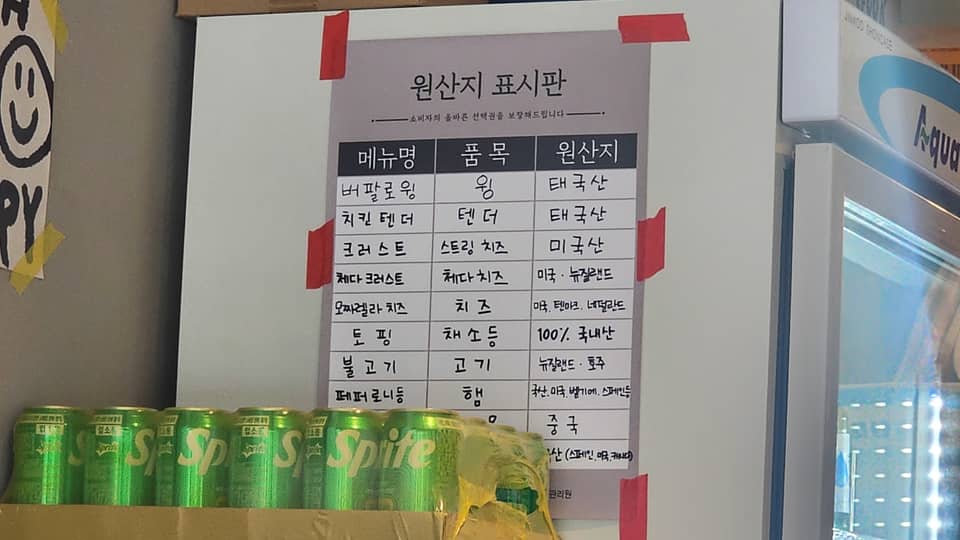 PY
원산지 표시판
소비자의 올바른 선택권을 보장해드립니다
메뉴명 품목 원산지
버팔로윙 윙 태국산
치킨텐더 텐더 태국산
크러스트 스트링 치즈 미국산
체다크러스트 체다치즈 미국 · 뉴질랜드
모짜렐라 치즈 치즈 미국, 덴마크, 네덜란드
토핑 채소등 100% 국내산
불고기 고기 뉴질랜드 · 호주
페퍼로니등 햄 국산, 미국, 벨기에, 스페인등
중국
산 (스페인, 미국, 캐나다)
관리원
Sprite
JINWOO SHOWCASE
Aqua